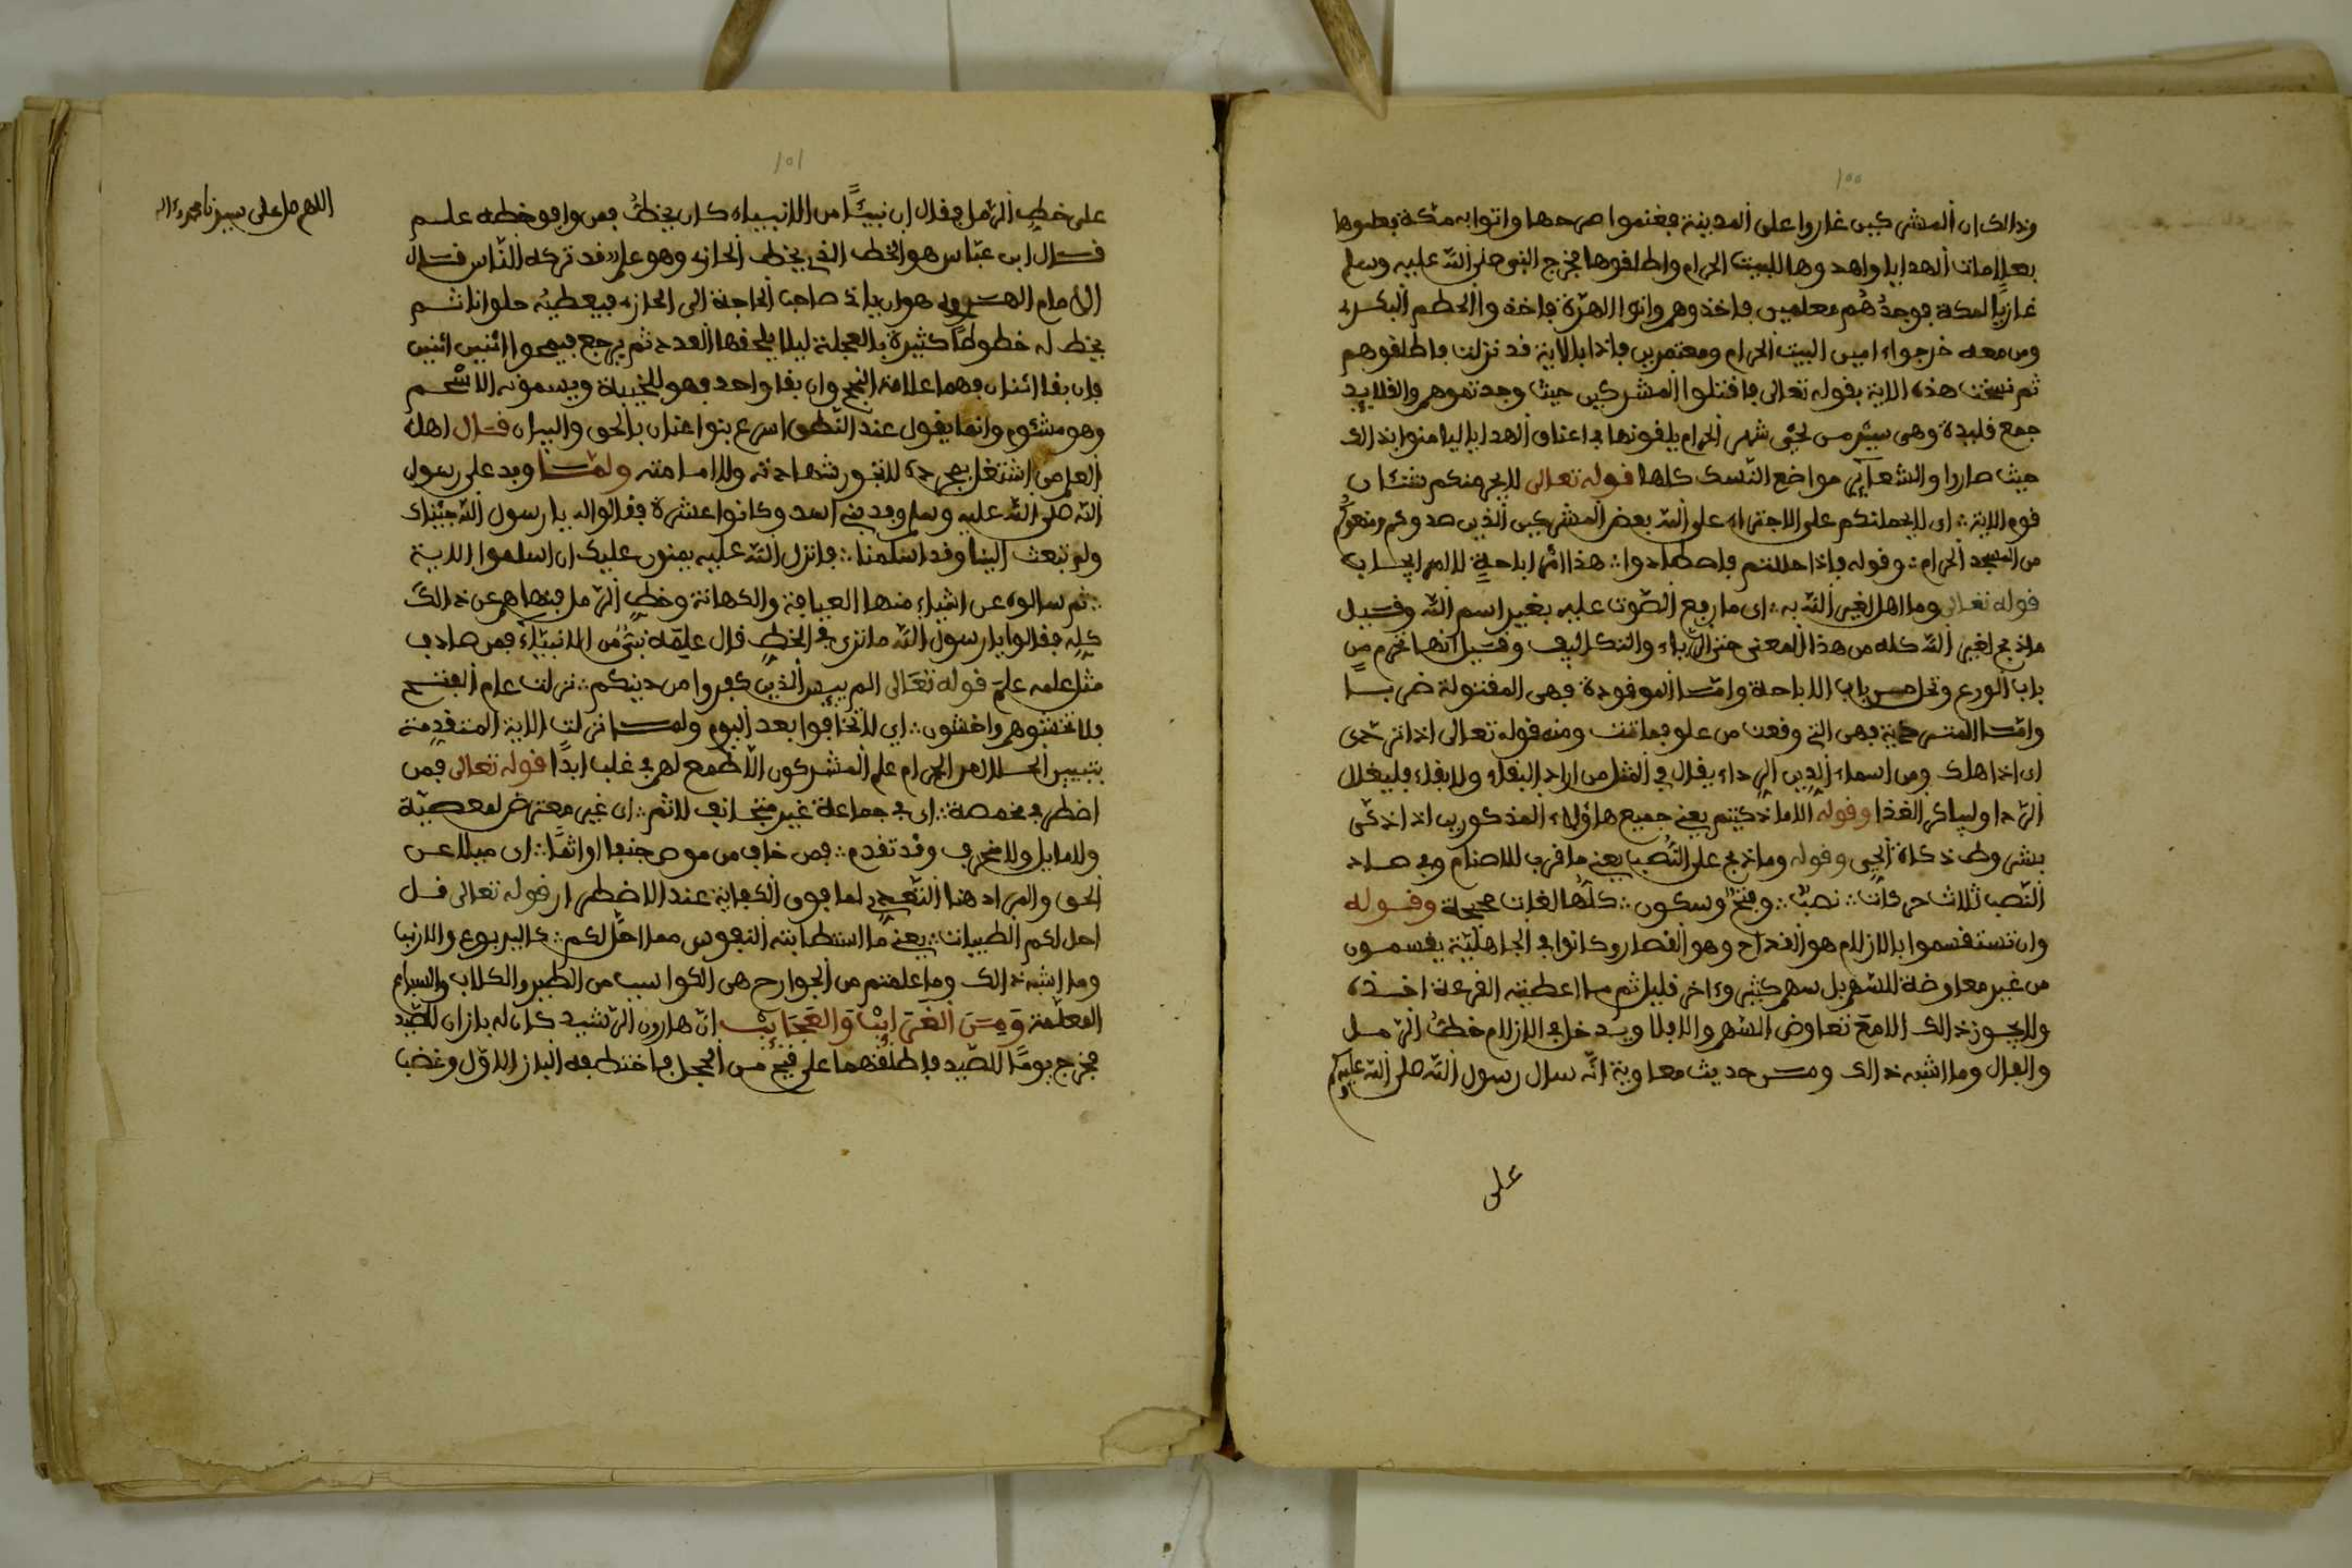 ١٠٠
وذالك ان المشركين غاروا على المدينة فغنموا صرحها واتوا به مكة بطوها
بعلامات الهدايا واهدوها للبيت الحرام واطلقوها فخرج النبي صلى الله عليه وسلم
غازيا لمكة فوجدهم معلمين فاخذوهم واتوا فاخذوا الحطم البكري
ومن معه خرجوا ءامين البيت الحرام ومعتمرين فاذا بالاية قد نزلت فاطلقوهم
ثم نسخت هذه الاية بقوله تعالى فاقتلوا المشركين حيث وجدتموهم والقلايد
جمع قليدة وهى سير من لحي شجر الحرام يلقونها في اعناق الهدايا ليامنوا بذالك
حيث صاروا والشعاير مواضع النسك كلها قوله تعالى لايجرمنكم شنئان
قوم الاية اى لايحملنكم على الاجتراء على الله بعض المشركين الذين صدوكم ومنعوكم
من المسجد الحرام وقوله فاذا حللتم فاصطادوا هذا امر اباحة لا امر ايجاب
قوله تعالى وما اهل لغير الله به اى ما رفع الصوت عليه بغير اسم الله وقيل
ما ذبح لغير الله كله من هذا المعنى حتى الرياء والتكاليف وقيل انها تحرم من
باب الورع وتخلص باب الاباحة واما الموقوذة فهى المقتولة ضربا
واما المتردية فهى التي وقعت من علو فماتت ومنه قوله تعالى اذا تردى
اى اذا هلك ومن اسماء الدين الرداء يقال في المثل من اراد البقاء ولا بقاء فليقلل
الردا وليباكر الغذا وقوله الا ما ذكيتم يعنى جميع هاؤلاء المذكورين اذا ذكى
بشروط ذكاة الحى وقوله وما ذبح على النصب يعنى ما قرب للاصنام وفي صاد
النصب ثلاث حركات نصب وفتح وسكون كلها لغات صحيحة وقوله
وان تستقسموا بالازلام هو القداح وهو القمار وكانوا في الجاهلية يقسمون
من غير معاوضة للسهم بل سهم كثير وءاخر قليل ثم ما اعطيته القرعة اخذه
ولايجوز ذالك الا مع تعاوض السهم والا فلا ويدخل في الازلام خط الرمل
والفال وما اشبه ذالك ومن حديث معاوية انه سال رسول الله صلى الله عليه وسلم
على
١٠١
على خط الرمل فقال ان نبيا من الانبياء كان يخط فمن وافق خطه علم
قال ابن عباس هو الخط الذي يخطه الحازى وهو علم قد تركه الناس قال
الامام الهروي هو ان ياتي صاحب الحاجة الى الحازى فيعطيه حلوانا ثم
يخط له خطوطا كثيرة بالعجلة ليلا يلحقها العدد ثم يرجع فيمحوا اثنين اثنين
فان بقا اثنان فهما علامة النجح وان بقا واحد فهو للخيبة ويسمونه الاشحم
وهو مشئوم وانما يقول عند النطق اسرع بنوا عنان بالحق والبيان قال اهل
العلم من اشتغل بمجرده لاتجوز شهادته ولا امامته ولما وفد على رسول
الله صلى الله عليه وسلم وفد بني اسد وكانوا عشرة فقالوا له يا رسول الله جئناك
ولم تبعث الينا وقد اسلمنا فانزل الله عليه يمنون عليك ان اسلموا الاية
ثم سالوه عن اشياء منها العيافة والكهانة وخط الرمل فنهاهم عن ذالك
كله فقالوا يا رسول الله ما ترى في الخط قال علمه نبي من الانبياء فمن صادف
مثل علمه علم قوله تعالى اليوم ييس الذين كفروا من دينكم نزلت عام الفتح
فلا تخشوهم واخشون اي لاتخافوا بعد اليوم ولما نزلت الاية المتقدمة
بتبيين الحلال من الحرام علم المشركون الا طمع لهم في غلب ابدا قوله تعالى فمن
اضطر في مخمصة اى في جماعة غير متجانف لاثم اى غير معترض لمعصية
ولا مايل ولا منحرف وقد تقدم فمن خاف من موص جنفا او اثما اى ميلا عن
الحق والمراد هنا التعدي لما فوق الكفاية عند الاضطرار قوله تعالى قل
احل لكم الطيبات يعنى ما استطابته النفوس مما احل لكم كاليربوع والارنب
وما اشبه ذالك وما علمتم من الجوارح هى الكواسب من الطير والكلاب والسباع
المعلمة ومن الغرايب والعجايب ان هارون الرشيد كان له بازان للصيد
فخرج يوما للصيد فاطلقهما على فيح من الحجل فاختطفه الباز الاول وغضبا
اللهم صل على سيدنا محمد وءاله